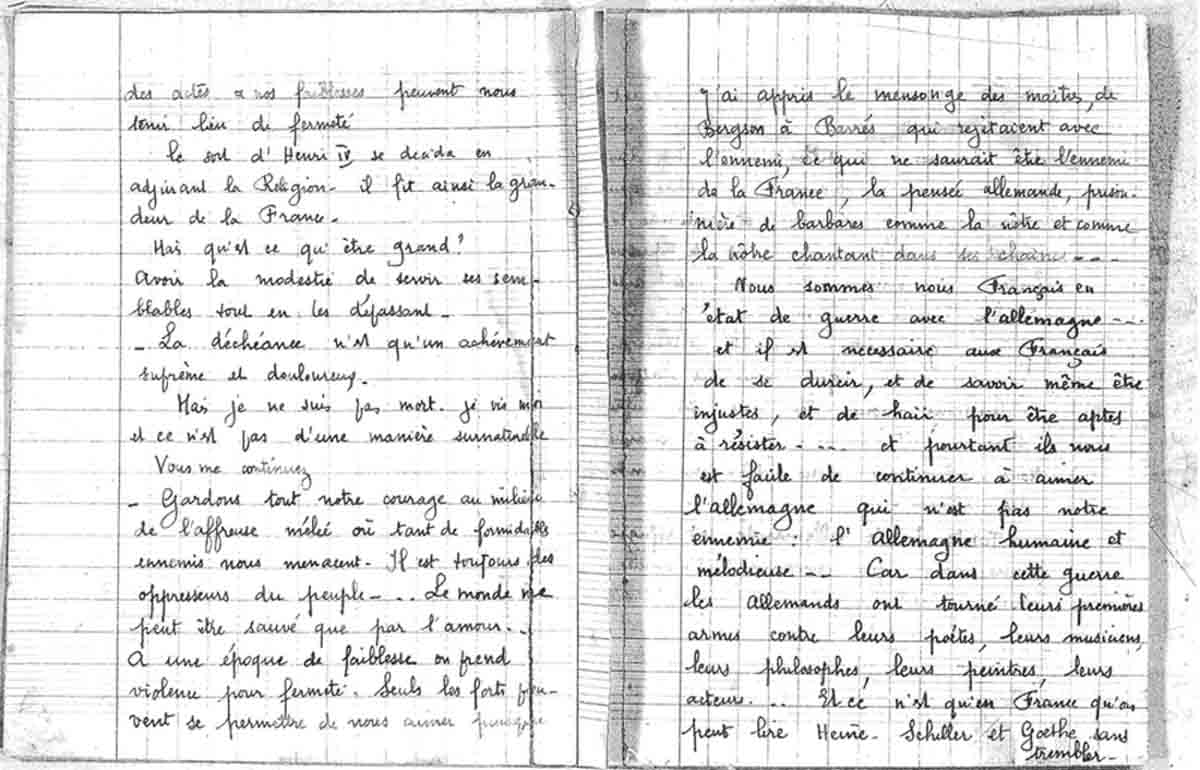 des actes & nos faiblesses peuvent nous
tenir lieu de fermeté
Le sort d'Henri IV se décida en
adjurant la Religion - il fit ainsi la gran-
deur de la France -
Mais qu'est ce qu'être grand ?
Avoir la modestie de servir ses sem-
blables tout en les dépassant -
- La déchéance n'est qu'un achèvement
suprême et douloureux -
Mais je ne suis pas mort - je vis moi
et ce n'est pas d'une manière surnaturelle
Vous me continuez
- Gardons tout notre courage au milieu
de l'affreuse mêlée où tant de formidables
ennemis nous menacent - Il est toujours des
oppresseurs du peuple - .. Le monde ne
peut être sauvé que par l'amour - .
A une époque de faiblesse on prend
violence pour fermeté Seuls les forts peu-
vent se permettre de nous aimer
J'ai appris le mensonge des maîtres, de
Bergson à Barrés qui rejetaient avec
l'ennemi, ce qui ne saurait être l'ennemi
de la France, la pensée allemande, prison-
nière de barbares comme la nôtre et comme
la nôtre chantant dans ses chaines - - -
Nous sommes nous Français en
état de guerre avec l'allemagne ---
et il est nécessaire aux Français
de se durcir, et de savoir même être
injustes, et de haïr pour être aptes
à résister - --- et pourtant ils nous
est facile de continuer à aimer
l'allemagne qui n'est pas notre
ennemie : l'Allemagne humaine et
mélodieuse -- Car dans cette guerre
les Allemands ont tourné les premières
armes contre leurs poètes, leurs musiciens,
leurs philosophes, leurs peintres, leurs
acteurs - .. Et ce n'est qu'en France qu'on
peut lire Heine - Schiller et Goethe sans
trembler -